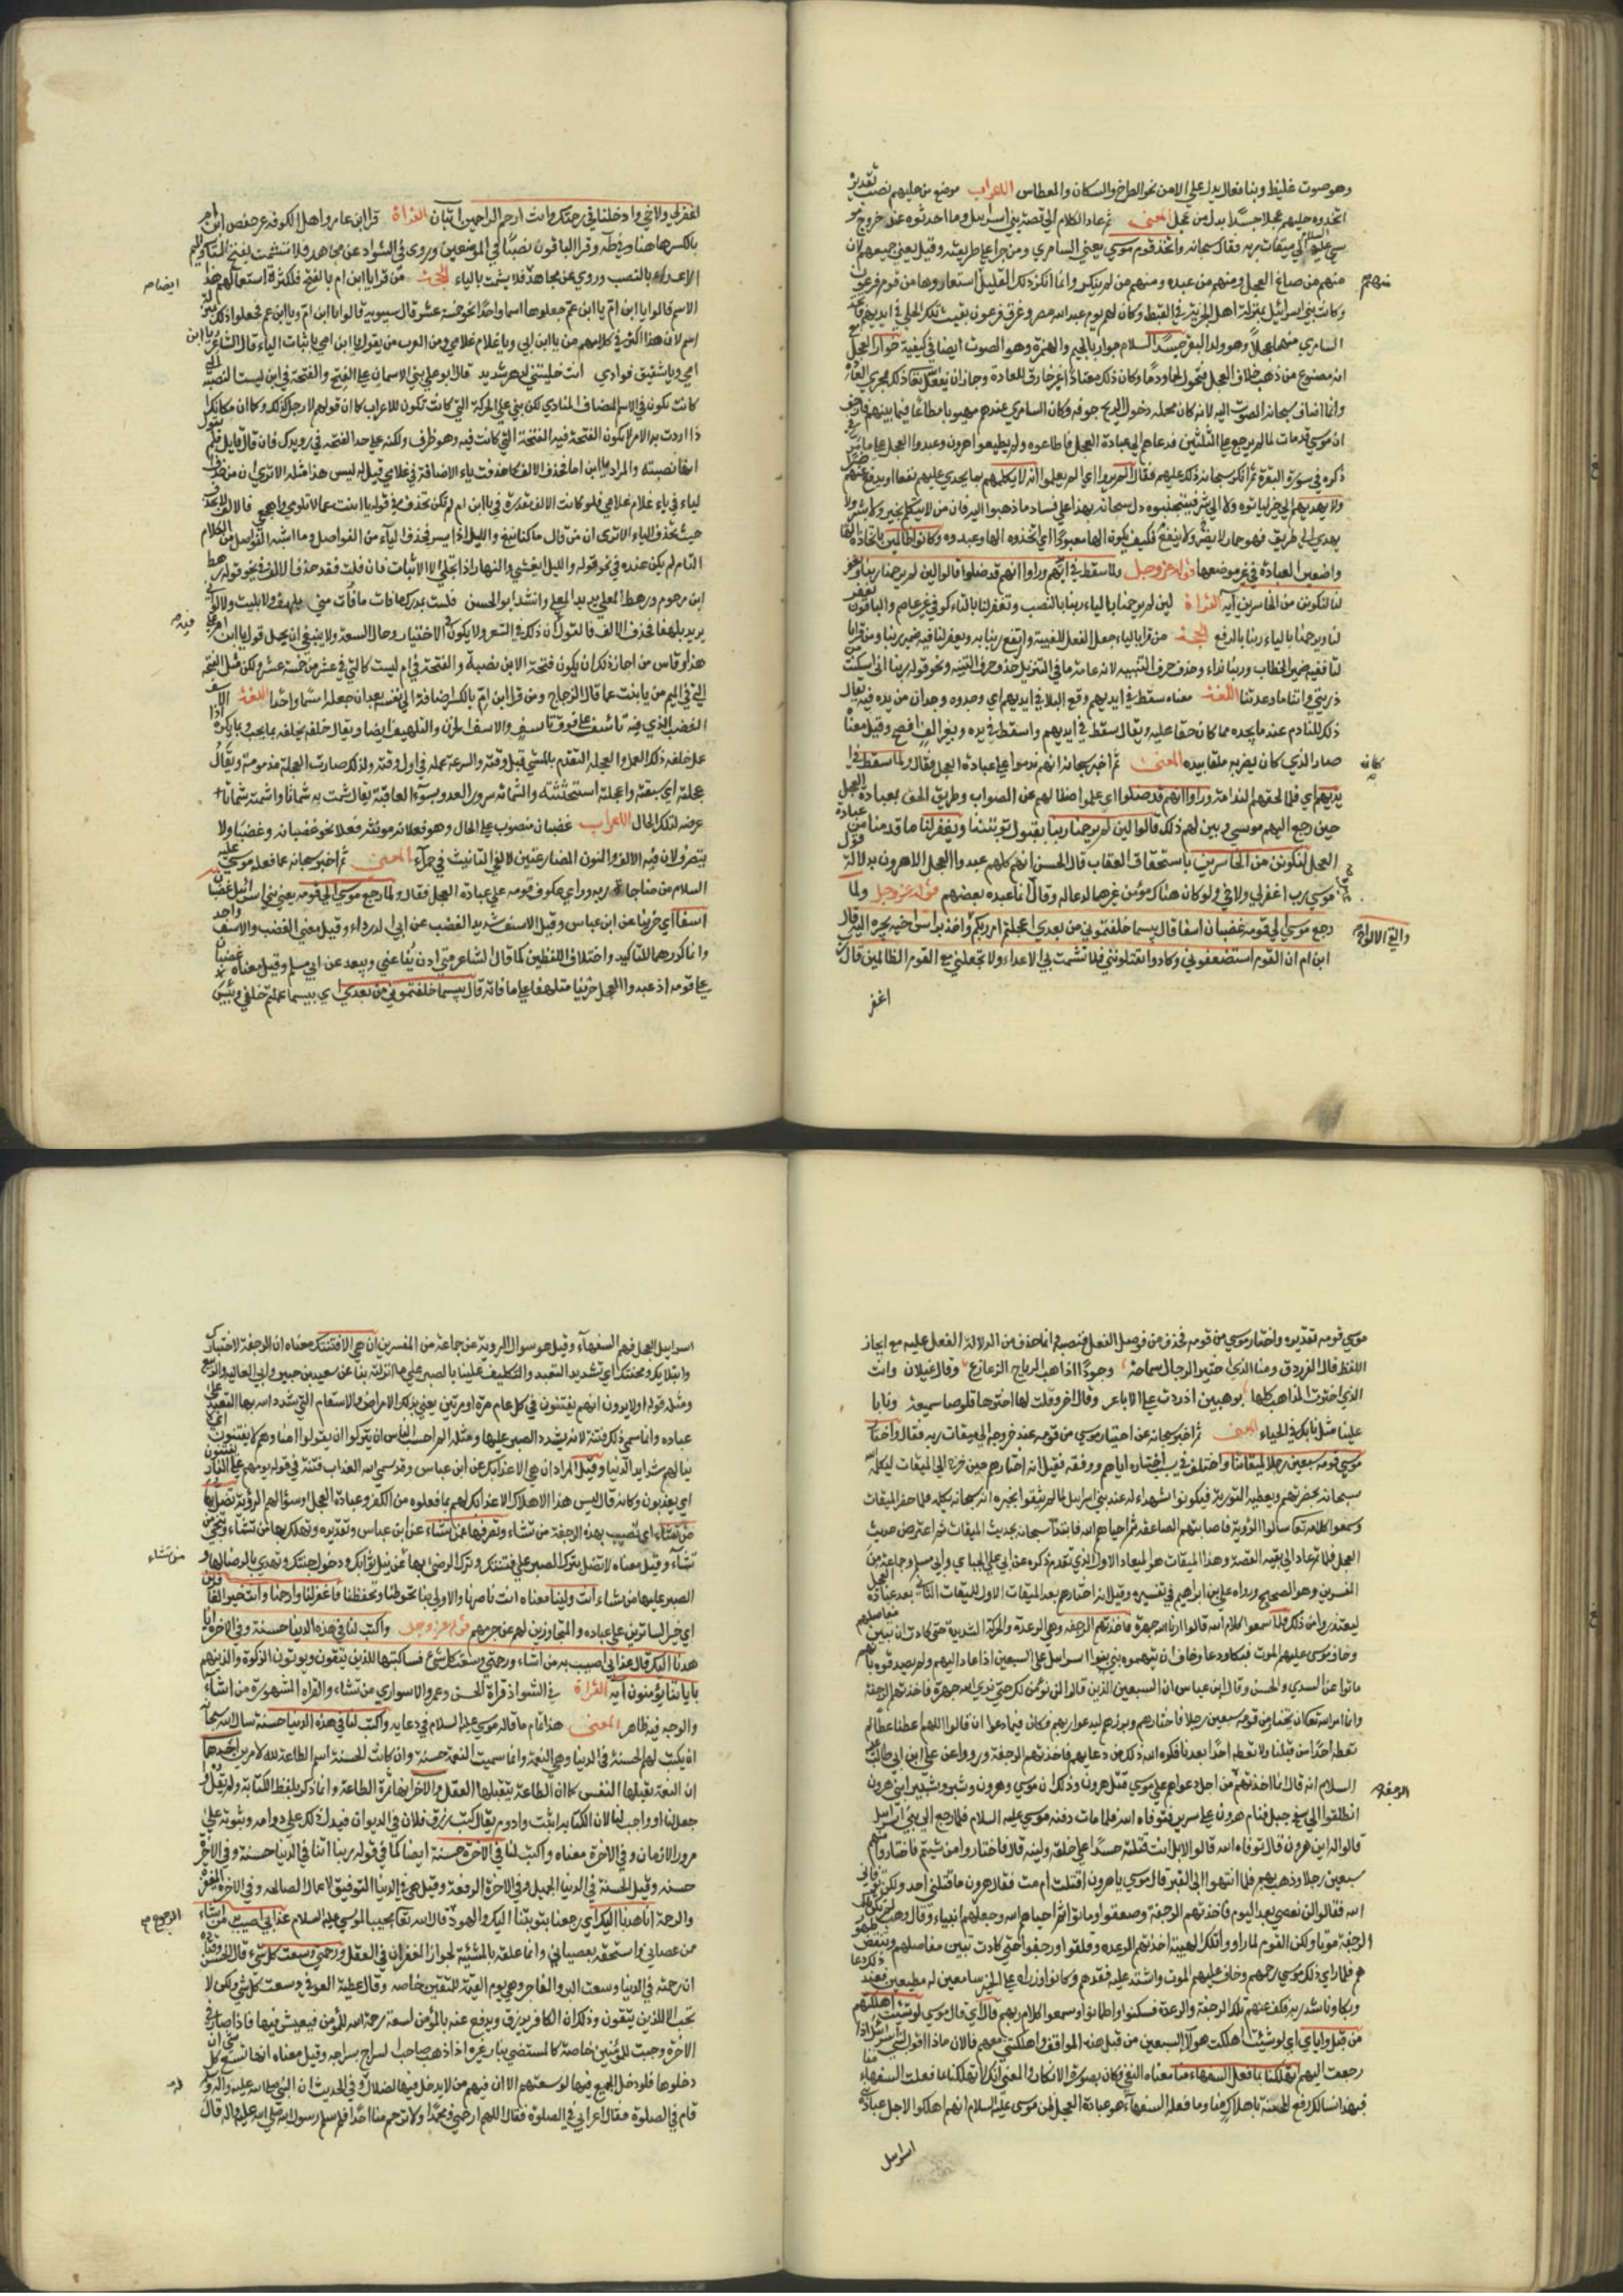 وهو صوت غليظ وبنا فعال يدل على الامن نحو الصراخ والسكات والعطاس الاعراب موضع من حليهم نصب تقديره
اتخذوه حليهم عجلا جسدا بدل من عجل المعنى ثم عاد الكلام الى قصة بني اسرايل وما احدثوه عند خروج مو
سى عليه السلام الى ميقات ربه فقال سبحانه واتخذ قوم موسى يعني السامري ومن جرا على طريقته وقيل يعني جميعهم لان
منهم من صاغ العجل ومنهم من عبده ومنهم من لم ينكر وانما انكر ذلك القليل استعاروها من قوم فرعون
منهم
وكانت بني اسرائيل بمنزلة اهل الجزية في القبط وكان لهم يوم عيد استعاروا
السامري منها عجلا وهو ولد البقر جسدا
انه مصنوع من ذهب خلاف العجل فتحول لحما ودما وكان ذلك معتادا غير خارق للعادة
وانما اضاف سبحانه الصوت اليه لانه كان محله دخول الريح جوفه وكان السامري عندهم مهيبا مطاعا فيما بينهم فارجف
ان موسى قد مات لما لم يرجع على الثلثين فدعاهم الى عبادة العجل فاطاعوه ولم يطيعوا هرون وعبدوا العجل على ما مر
ذكره في سورة البقرة ثم انكر سبحانه ذلك عليهم فقال الم يروا اي الم يعلموا انه لا يكلمهم بما يجدي عليهم نفعا او يدفع عنهم ضررا
ولا يهديهم الى خير لياتوه ولا الى شر فيتجنبوه دل سبحانه بهذا على فساد ما ذهبوا اليه فان من لا يتكلم بخير ولا شر ولا
يهدي الى طريق فهو جماد لا يضر ولا ينفع فكيف يكون الها معبودا اتخذوه اي اتخذوه الها وعبدوه وكانوا ظالمين باتخاذه الها
واضعين العبادة في غير موضعها قوله عز وجل ولما سقط في ايديهم وراوا انهم قد ضلوا قالوا لين لم يرحمنا ربنا ويغفر
لنا لنكونن من الخاسرين آية القراة لين لم يرحمنا بالياء ربنا بالنصب وتغفر لنا بالتاء كوفي غير عاصم والباقون
لنا ويرحمنا بالياء ربنا بالرفع الحجة من قرا بالياء جعل الفعل للغيبة وارتفع ربنا به ويغفر لنا فيه ضمير ربنا ومن قرا بالتا
ففيه ضمير الخطاب وربنا نداء وحذف حرف التنبيه لانه عامة ما في التنزيل حذف حرف التنبيه ونحو قوله ربنا اني اسكنت من
ذريتي واتنا ما وعدتنا اللغة معناه سقط في ايديهم وقع البلا في ايديهم اي وجدوه وجدان من يده فيه يقال
ذلك للنادم عند ما يجده مما كان خفا عليه ويقال سقط في ايديهم واسقط في يده وبغير الف افصح وقيل معناه
صار الذي كان يضر به ملقا بيده المعنى ثم اخبر سبحانه انهم ندموا على عبادة العجل فقال ولما سقط في ا
كانه
يديهم اي فلما لحقهم الندامة وراوا انهم قد ضلوا اي علموا ضلالهم عن الصواب وطريق الحق بعبادة العجل
حين رجع اليهم موسى وبين لهم ذلك قالوا لين لم يرحمنا ربنا بقبول توبتنا ويغفر لنا ما قدمنا من عبادة
العجل لنكونن من الخاسرين باستحقاق العقاب قال الحسن انهم كلهم عبدوا العجل الا هرون بدلالة قول
موسى رب اغفر لي ولاخي ولو كان هناك مؤمن غيرهما لدعا له وقال انما عبده بعضهم قوله عز وجل ولما
رجع موسى الى قومه غضبان اسفا قال بيسما خلفتموني من بعدي اعجلتم امر ربكم واخذ براس اخيه يجره اليه قال
والقى الالواح
ابن ام ان القوم استضعفوني وكادوا يقتلونني فلا تشمت بي الاعداء ولا تجعلني مع القوم الظالمين قال رب
اغفر
اغفر لي ولاخي وادخلنا في رحمتك وانت ارحم الراحمين آيتان القراة قرا ابن عامر واهل الكوفة غير حفص ابن ام
بالكسر ههنا وفي طه وقرا الباقون نصبا في الموضعين وروي في الشواذ عن مجاهد فلا تشمت بفتح التا والميم
الاعداء بالنصب وروي عن مجاهد فلا يشمت بالياء الحجة من قرا يا ابن ام بالفتح فلكثرة استعمالهم هذا
ايضا
الاسم قالوا يا ابن ام يا ابن عم جعلوها اسما واحدا نحو خمسة عشر قال سيبويه قالوا يا ابن ام ويا ابن عم فجعلوا ذلك بمنزلة
اسم لان هذا اكثر في كلامهم من يا ابن ابي ويا غلام غلامي ومن العرب من يقول يا ابن امي باثبات الياء قال الشاعر يا ابن
امي ويا شقيق فوادي انت خليتني لدهر شديد قال ابو علي بني الاسمان على الفتح والفتحة في ابن ليست النصبة التي
كانت تكون في الاسم المضاف المنادى لكن بني على الحركة التي كانت تكون للاعراب كما ان قولهم لا رجل كذلك وكما ان مكانك
اذا اردت به الامر لا يكون الفتحة فيه الفتحة التي كانت فيه وهو ظرف ولكنه على حد الفتحة في رويدك فان قال قايل فلم
لياء في ياء غلام غلامي فلو كانت الالف مقدرة في يا ابن ام لم تكن تحذف في قوله يا ابنت عما لا تلومي واهجعي
حيث تحذف الياء الا ترى ان من قال ما كنا نبغ والليل اذا يسر فحذف الياء من الفواصل وما اشبه الفواصل من الكلام
التام لم يكن عنده في نحو قوله والليل اذا يغشى والنهار اذا تجلى الا الاثبات فان قلت فقد حذف الالف في نحو قوله رهط
ابن مرجوم ورهط ابن المعل يريد المعلى وانشد ابو الحسن فلست بمدرك ما فات مني بلهف ولا بليت ولا لو اني
يريد بلهفا فحذف الالف فالقول ان ذلك في الشعر ولا يكون في الاختيار وحال السعة ولا ينبغي ان يحمل قوله يا ابن ام على
فيه
هذا وقاس من اجاز ذلك ان يكون فتحة الابن نصبة والفتحة في ام ليست كالتي في عشر من خمسة عشر ولكن مثل الفتحة
التي في الميم من يا بنت عما قال الزجاج ومن قرا ابن ام بالكسر اضافه الى نفسه بعد ان جعله اسما واحدا اللغة الاسف
على خلفه ذلك العمل والعجلة التقدم بالشي قبل وقته والسرعة عمله في اول وقته ولذلك صارت العجلة مذمومة ويقال
عجلته اي سبقته واعجلته استحثثته والشماتة سرور العدو بسوء العاقبة يقال شمت به شماتا واشمته شماتا
عرضه لتلك الحال الاعراب غضبان منصوب على الحال وهو فعلان مونثه فعلى نحو غضبان وغضبى ولا
ينصرف لان فيه الالف والنون المضارعتين لالفي التانيث في حمراء المعنى ثم اخبر سبحانه عما فعله موسى عليه
السلام من مناجاة ربه وراى عكوف قومه على عبادة العجل فقال ولما رجع موسى الى قومه يعني بني اسرائيل غضبان
اسفا اي حزينا عن ابن عباس وقيل الاسف شديد الغضب عن ابي الدرداء وقيل معنى الغضب والاسف واحد
وانما كررهما للتاكيد واختلاف اللفظين كما قال الشاعر متى ادن ينا عني ويبعد عن ابي مسلم وقيل معناه غضبان
على قومه اذ عبدوا العجل حزينا متلهفا على ما فاته قال بيسما خلفتموني من بعدي اي بيسما عملتم خلفي وبئس
موسى قومه تقديره واختار موسى من قومه فحذف من فوصل الفعل فنصب وانما حذف من لدلالة الفعل عليه مع ايجاز
اللفظ قال الفرزدق ومنا الذي اختير الرجال سماحة وجودا اذا هب الرياح الزعازع وقال غيلان وانت
الذي اخترت المذاهب كلها بوهبين اذ ردت علي الاباعر وقال اخر وقلت له اخترها قلوصا سمينة ونابا
علينا مثل نابك في الحياء المعنى ثم اخبر سبحانه عن اختيار موسى من قومه عند خروجه الى ميقات ربه فقال واختار
موسى قومه سبعين رجلا لميقاتنا واختلف في سبب اختياره اياهم ووقته فقيل انه اختارهم حين خرج الى الميقات ليكلمه الله
سبحانه بحضرتهم ويعطيه التورية فيكونوا شهداء له عند بني اسرايل لما لم يثقوا بخبره انه سبحانه يكلمه فلما حضر الميقات
وسمعوا كلامه تعا سالوا الرؤية فاصابتهم الصاعقة ثم احياهم الله فابتدا سبحانه بحديث الميقات ثم اعترض حديث
العجل فلما تم عاد الى بقية القصة وهذا الميقات هو الميعاد الاول الذي تقدم ذكره عن ابي علي الجبائي وابي مسلم وجماعة من
المفسرين وهو الصحيح ورواه علي بن ابراهيم في تفسيره وقيل انه اختارهم بعد الميقات الاول للميقات الثاني بعد عبادة العجل
ليعتذروا من ذلك فلما سمعوا كلام الله قالوا ارنا الله جهرة فاخذتهم الرجفة وهي الرعدة والحركة الشديدة حتى كادت ان تبين مفاصلهم
وخاف موسى عليهم الموت فبكا ودعا وخاف ان يتهموه بنو اسرايل على السبعين اذا عاد اليهم ولم يصدقوه بانهم
ماتوا عن السدي والحسن وقال ابن عباس ان السبعين الذين قالوا لن نومن لك حتى نرى الله جهرة فاخذتهم الرجفة
وانما امر الله تعا ان يختار من قومه سبعين رجلا فاختارهم وبرز بهم ليدعوا ربهم فكان فيما دعوا ان قالوا اللهم اعطنا ما لم
تعطه احدا من قبلنا ولا تعطه احدا بعدنا فكره الله ذلك من دعايهم فاخذتهم الرجفة ورووا عن علي ابن ابي طالب عليه
السلام انه قال انما اخذتهم من اجل دعواهم على موسى قتل هرون وذلك ان موسى وهرون وشبر وشبير ابني هرون
الرجفة
انطلقوا الى سفح جبل فنام هرون على سرير فتوفاه الله فلما مات دفنه موسى عليه السلام فلما رجع الى بني اسرايل
قالوا له اين هرون قال توفاه الله قالوا لا بل انت قتلته حسدا على خلقه ولينه قال فاختاروا من شيتم فاختاروا منهم
سبعين رجلا وذهب بهم فلما انتهوا الى القبر قال موسى يا هرون اقتلت ام مت فقال هرون ما قتلني احد ولكن توفاني
الله فقالوا لن نعصي بعد اليوم فاخذتهم الرجفة وصعقوا وماتوا ثم احياهم الله وجعلهم انبياء وقال وهب لم تكن تلك
الرجفة موتا ولكن القوم لما راوا تلك الهيبة اخذتهم الرعدة وقلقوا ورجفوا حتى كادت تبين مفاصلهم وتنقض ظهو
رهم فلما راى ذلك موسى رحمهم وخاف عليهم الموت واشتد عليه فقدهم وكانوا وزراه على الخير سامعين له مطيعين فعند ذلك دعا
وبكا وناشد ربه فكشف عنهم تلك الرجفة والرعدة فسكنوا واطمانوا وسمعوا كلام ربهم قال اي قال موسى لو شيت اهلكتهم
من قبل واياي اي لو شيت اهلكت هولاء السبعين من قبل هذه المواقف واهلكتني معهم فالان ماذا اقول لبني اسرايل اذا
رجعت اليهم اتهلكنا بما فعل السفهاء منا معناه النفي وكان بصورة الانكار والمعنى انك لا تهلكنا بما فعلت السفهاء منا
فبهذا نسالك رفع المحنة باهلاك منا وما فعله السفهاء هو عبادة العجل ظن موسى عليه السلام انهم اهلكوا لاجل عبادة بني
اسرايل
اسرايل العجل فهم السفهاء وقيل هو سوال الروية عن جماعة من المفسرين ان هي الا فتنتك معناه ان الرجفة الا اختبارك
وابتلاوك ومحنتك اي تشديد التعبد والتكليف علينا بالصبر على ما انزلته بنا عن سعيد بن جبير وابي العالية والربيع
ومثله قوله اولا يرون انهم يفتنون في كل عام مرة او مرتين يعني بذلك الامراض والاسقام التي شدد الله بها التعبد على
عباده وانما سمى ذلك فتنة لانه يشدد الصبر عليها ومثله الم احسب الناس ان يتركوا ان يقولوا امنا وهم لا يفتنون اي لا
ينالهم شدايد الدنيا وقيل المراد ان هي الا عذابك عن ابن عباس وقد سمى الله العذاب فتنة في قوله يوم هم على النار يفتنون
اي يعذبون وكانه قال ليس هذا الاهلاك الا عذابك لهم بما فعلوه من الكفر وعبادة العجل وسؤالهم الرؤية تضل بها
من تشاء اي تصيب بهذه الرجفة من تشاء وتصرفها عمن تشاء عن ابن عباس وتقديره وتهلك بها من تشاء وتنجي من
تشاء وقيل معناه لا تضل بترك الصبر على فتنتك وترك الرضى بها عن نيل ثوابك ودخول جنتك وتهدي بالرضا لها و
من تشاء
الصبر عليها من شاء انت ولينا معناه انت ناصرنا والاولى بنا تحوطنا وتحفظنا فاغفر لنا وارحمنا وانت خير الغافرين
اي خير الساترين على عباده والمتجاوزين لهم عن جرمهم قوله عز وجل واكتب لنا في هذه الدنيا حسنة وفي الاخرة انا
هدنا اليك قال عذابي اصيب به من اشاء ورحمتي وسعت كل شيء فساكتبها للذين يتقون ويوتون الزكوة والذين هم
باياتنا يؤمنون آية القراة في الشواذ قراة الحسن وعمرو الاسواري من تشاء والقراة المشهورة من اشاء
والوجه فيه ظاهر المعنى هذا تمام ما قاله موسى عليه السلام في دعايه واكتب لنا في هذه الدنيا حسنة سال الله سبحانه
ان يكتب لهم الحسنة في الدنيا وهي النعمة وانما سميت النعمة حسنة وان كانت الحسنة اسم الطاعة لله لامرين احدهما
ان النعمة يتقبلها النفس كما ان الطاعة يتقبلها العقل والاخر انها ثمرة الطاعة وانما ذكر بلفظ الكتابة ولم يقل و
جعل لنا او واجب لنا لان الكتابة اثبت وادوم يقال كتب رزق فلان في الديوان فيدل ذلك على دوامه وثبوته على
مرور الازمان وفي الاخرة معناه واكتب لنا في الاخرة حسنة ايضا كما في قوله ربنا اتنا في الدنيا حسنة وفي الاخرة
حسنة وقيل الحسنة في الدنيا الجميل وفي الاخرة الرفعة وقيل هي في الدنيا التوفيق لاعمال الصالحة وفي الاخرة المغفرة
والرحمة انا هدنا اليك اي رجعنا بتوبتنا اليك والهود قال الله تعا مجيبا لموسى عليه السلام عذابي اصيب به من اشاء
الرجوع
ممن عصاني واستحقه بعصيانه وانما علقه بالمشيئة لجواز الغفران في العقل ورحمتي وسعت كل شيء قال الحسن وقتادة
ان رحمته في الدنيا وسعت البر والفاجر وهي يوم القيمة للمتقين خاصة وقال عطية العوفي وسعت كل شيء ولكن لا
تجب الا للذين يتقون وذلك ان الكافر يرزق ويدفع عنه بالمؤمن لسعة رحمة الله للمؤمن فيعيش فيها فاذا صار في
الاخرة وجبت للمؤمنين خاصة كالمستضي بنار غيره اذا ذهب صاحب السراج بسراجه وقيل معناه انها تسع كل شيء ان
دخلوها فلو دخل الجميع فيها لوسعتهم الا ان فيهم من لا يدخل فيها لضلاله وفي الحديث ان النبي صلى الله عليه واله
قام في الصلوة فقال اعرابي في الصلوة فقال اللهم ارحمني ومحمدا ولا ترحم معنا احدا فلما سلم رسول الله صلى الله عليه واله قال